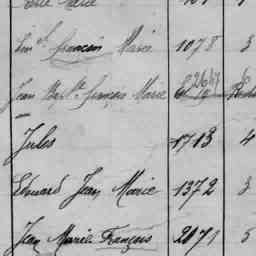 Marie
François Marie 1078 3
Jean François Marie
Jules 1713 4
Edouard Jean Marie 1372 3
Jean Marie François 2071 5